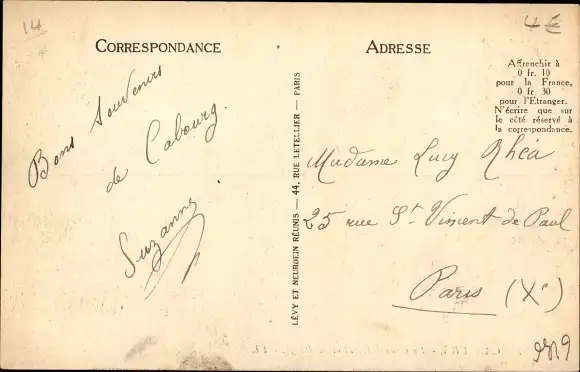 14
4€
CORRESPONDANCE
ADRESSE
Affranchir à
0 fr. 10
pour la France,
0 fr. 30
pour l'Etranger.
N'écrire que sur
le côté réservé à
la correspondance.
Bons Souvenirs
de Cabourg.
Suzanne
LÉVY ET NEURDEIN RÉUNIS — 44, RUE LETELLIER — PARIS
Madame Lucy Rhéa
25 rue St. Vincent de Paul
Paris (Xe)